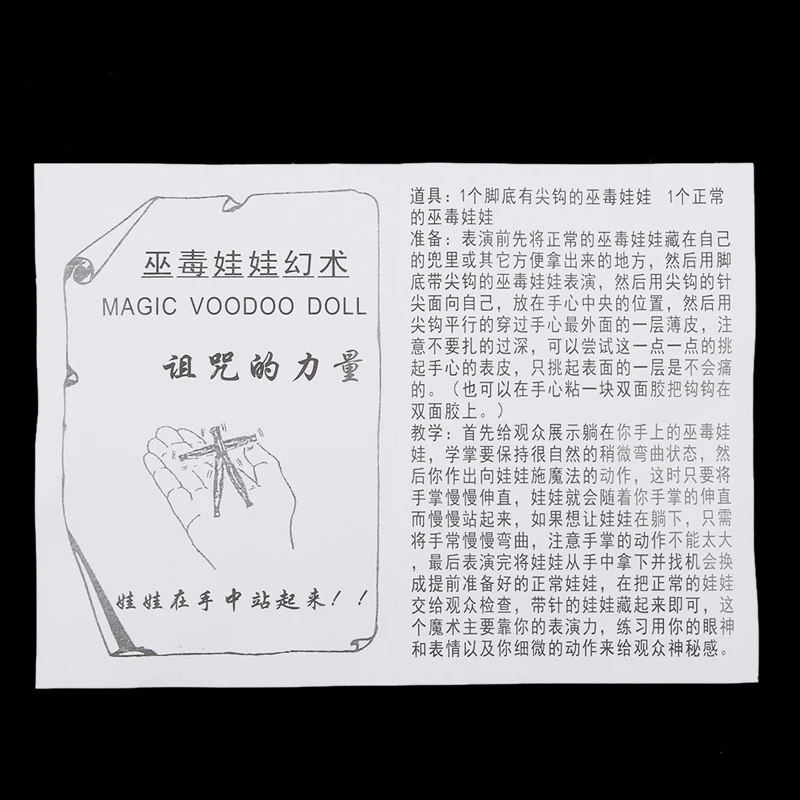 巫毒娃娃幻术
MAGIC VOODOO DOLL
诅咒的力量
娃娃在手中站起来！！
道具：1个脚底有尖钩的巫毒娃娃 1个正常
的巫毒娃娃
准备：表演前先将正常的巫毒娃娃藏在自己
的兜里或其它方便拿出来的地方，然后用脚
底带尖钩的巫毒娃娃表演，然后用尖钩的针
尖面向自己，放在手心中央的位置，然后用
尖钩平行的穿过手心最外面的一层薄皮，注
意不要扎的过深，可以尝试这一点一点的挑
起手心的表皮，只挑起表面的一层是不会痛
的。（也可以在手心粘一块双面胶把钩钩在
双面胶上。）
教学：首先给观众展示躺在你手上的巫毒娃
娃，学掌要保持很自然的稍微弯曲状态，然
后你作出向娃娃施魔法的动作，这时只要将
手掌慢慢伸直，娃娃就会随着你手掌的伸直
而慢慢站起来，如果想让娃娃在躺下，只需
将手常慢慢弯曲，注意手掌的动作不能太大
，最后表演完将娃娃从手中拿下并找机会换
成提前准备好的正常娃娃，在把正常的娃娃
交给观众检查，带针的娃娃藏起来即可，这
个魔术主要靠你的表演力，练习用你的眼神
和表情以及你细微的动作来给观众神秘感。